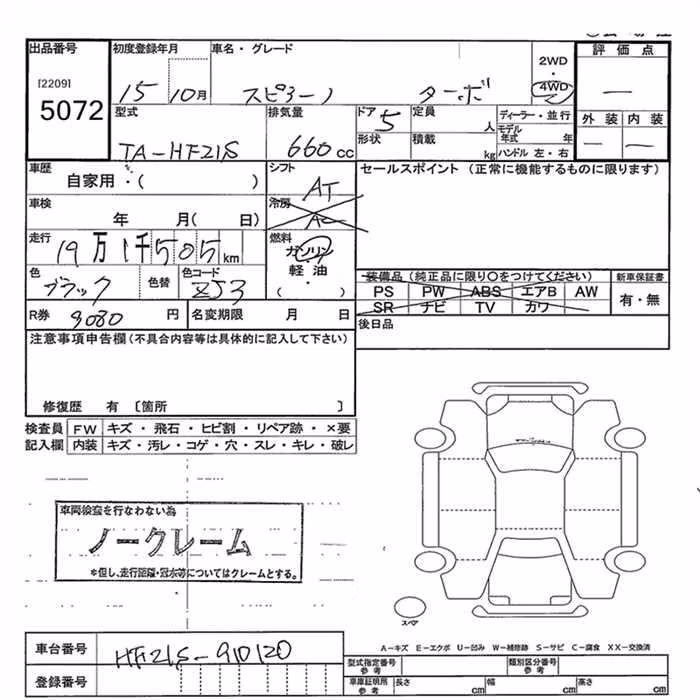 出品番号 初度登録年月 車名・グレード 2WD・4WD 評価点
[2209]
5072
15 10月 スピアーノ ターボ —
型式 排気量 ドア 定員 ディーラー・並行 外装 内装
TA-HF21S 660cc 5 人 モデル年式 年 — —
形状 積載 kg ハンドル 左・右
車歴 シフト セールスポイント (正常に機能するものに限ります)
自家用・( ) AT
車検 冷房
年 月( 日) AC
走行 燃料
19万1千505km ガソリン
軽油
・
( )
色 色替 色コード 装備品 (純正品に限り〇をつけてください) 新車保証書
ブラック ZJ3 PS PW ABS エアB AW 有・無
SR ナビ TV カワ
R券 9080円 名変期限 月 日 後日品
注意事項申告欄(不具合内容等は具体的に記入して下さい)
修復歴 有 〔箇所 〕
検査員 FW キズ・飛石・ヒビ割・リペア跡・×要
記入欄 内装 キズ・汚レ・コゲ・穴・スレ・キレ・破レ
車両検査を行なわない為
ノークレーム
*但し、走行距離・冠水等についてはクレームとする。
スペア
A-キズ E-エクボ U-凹み W-補修跡 S-サビ C-腐食 XX-交換済
車台番号 HF21S-910120
登録番号
型式指定番号 参考 類別区分番号 参考
車庫証明所 参考 長さ cm 幅 cm 高さ cm